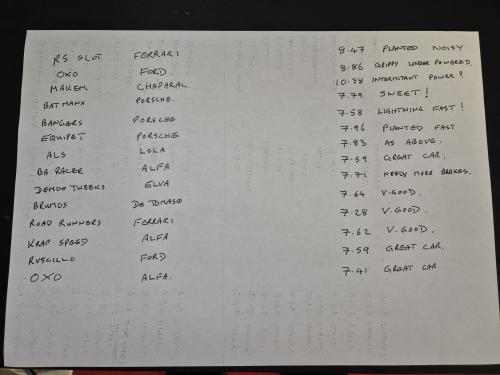 RS SLOT FERRARI 8.47 PLANTED NOISY
OXO FORD 8.86 GRIPPY UNDER POWERED.
MAKEM CHAPARAL 10.38 INTERMITANT POWER?
BATMANX PORSCHE. 7.79 SWEET!
BANGERS PORSCHE 7.58 LIGHTNING FAST!
EQUIPET PORSCHE 7.96 PLANTED FAST
ALS LOLA 7.83 AS ABOVE.
BA RACER ALFA 7.59 GREAT CAR.
DEMON TWEEKS ELVA 7.71 NEEDS MORE BRAKES.
BRUMOS DE TOMASO 7.64 V.GOOD.
ROAD RUNNERS FERRARI 7.28 V.GOOD.
KRAP SPEED ALFA 7.62 V.GOOD.
RUSCILLO FORD 7.59 GREAT CAR.
OXO ALFA. 7.41 GREAT CAR